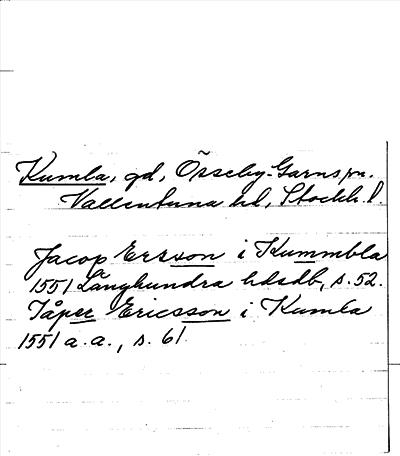 Kumla, gd, Össeby-Garns sn.
Vallentuna hd, Stockh. l.
Jacop Ersson i Kummbla
1551 Långhundra hdsdb, s. 52.
Jåper Ericsson i Kumla
1551 a.a., s. 61